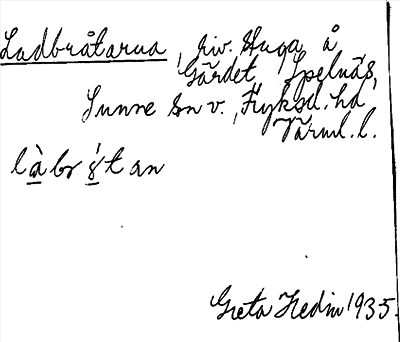 Ladbråtarna, riv. stuga å
Gärdet, Spelnäs,
Sunne sn v., Fryksd. hd,
Värml. l.
làbrót an
Greta Hedin 1935.